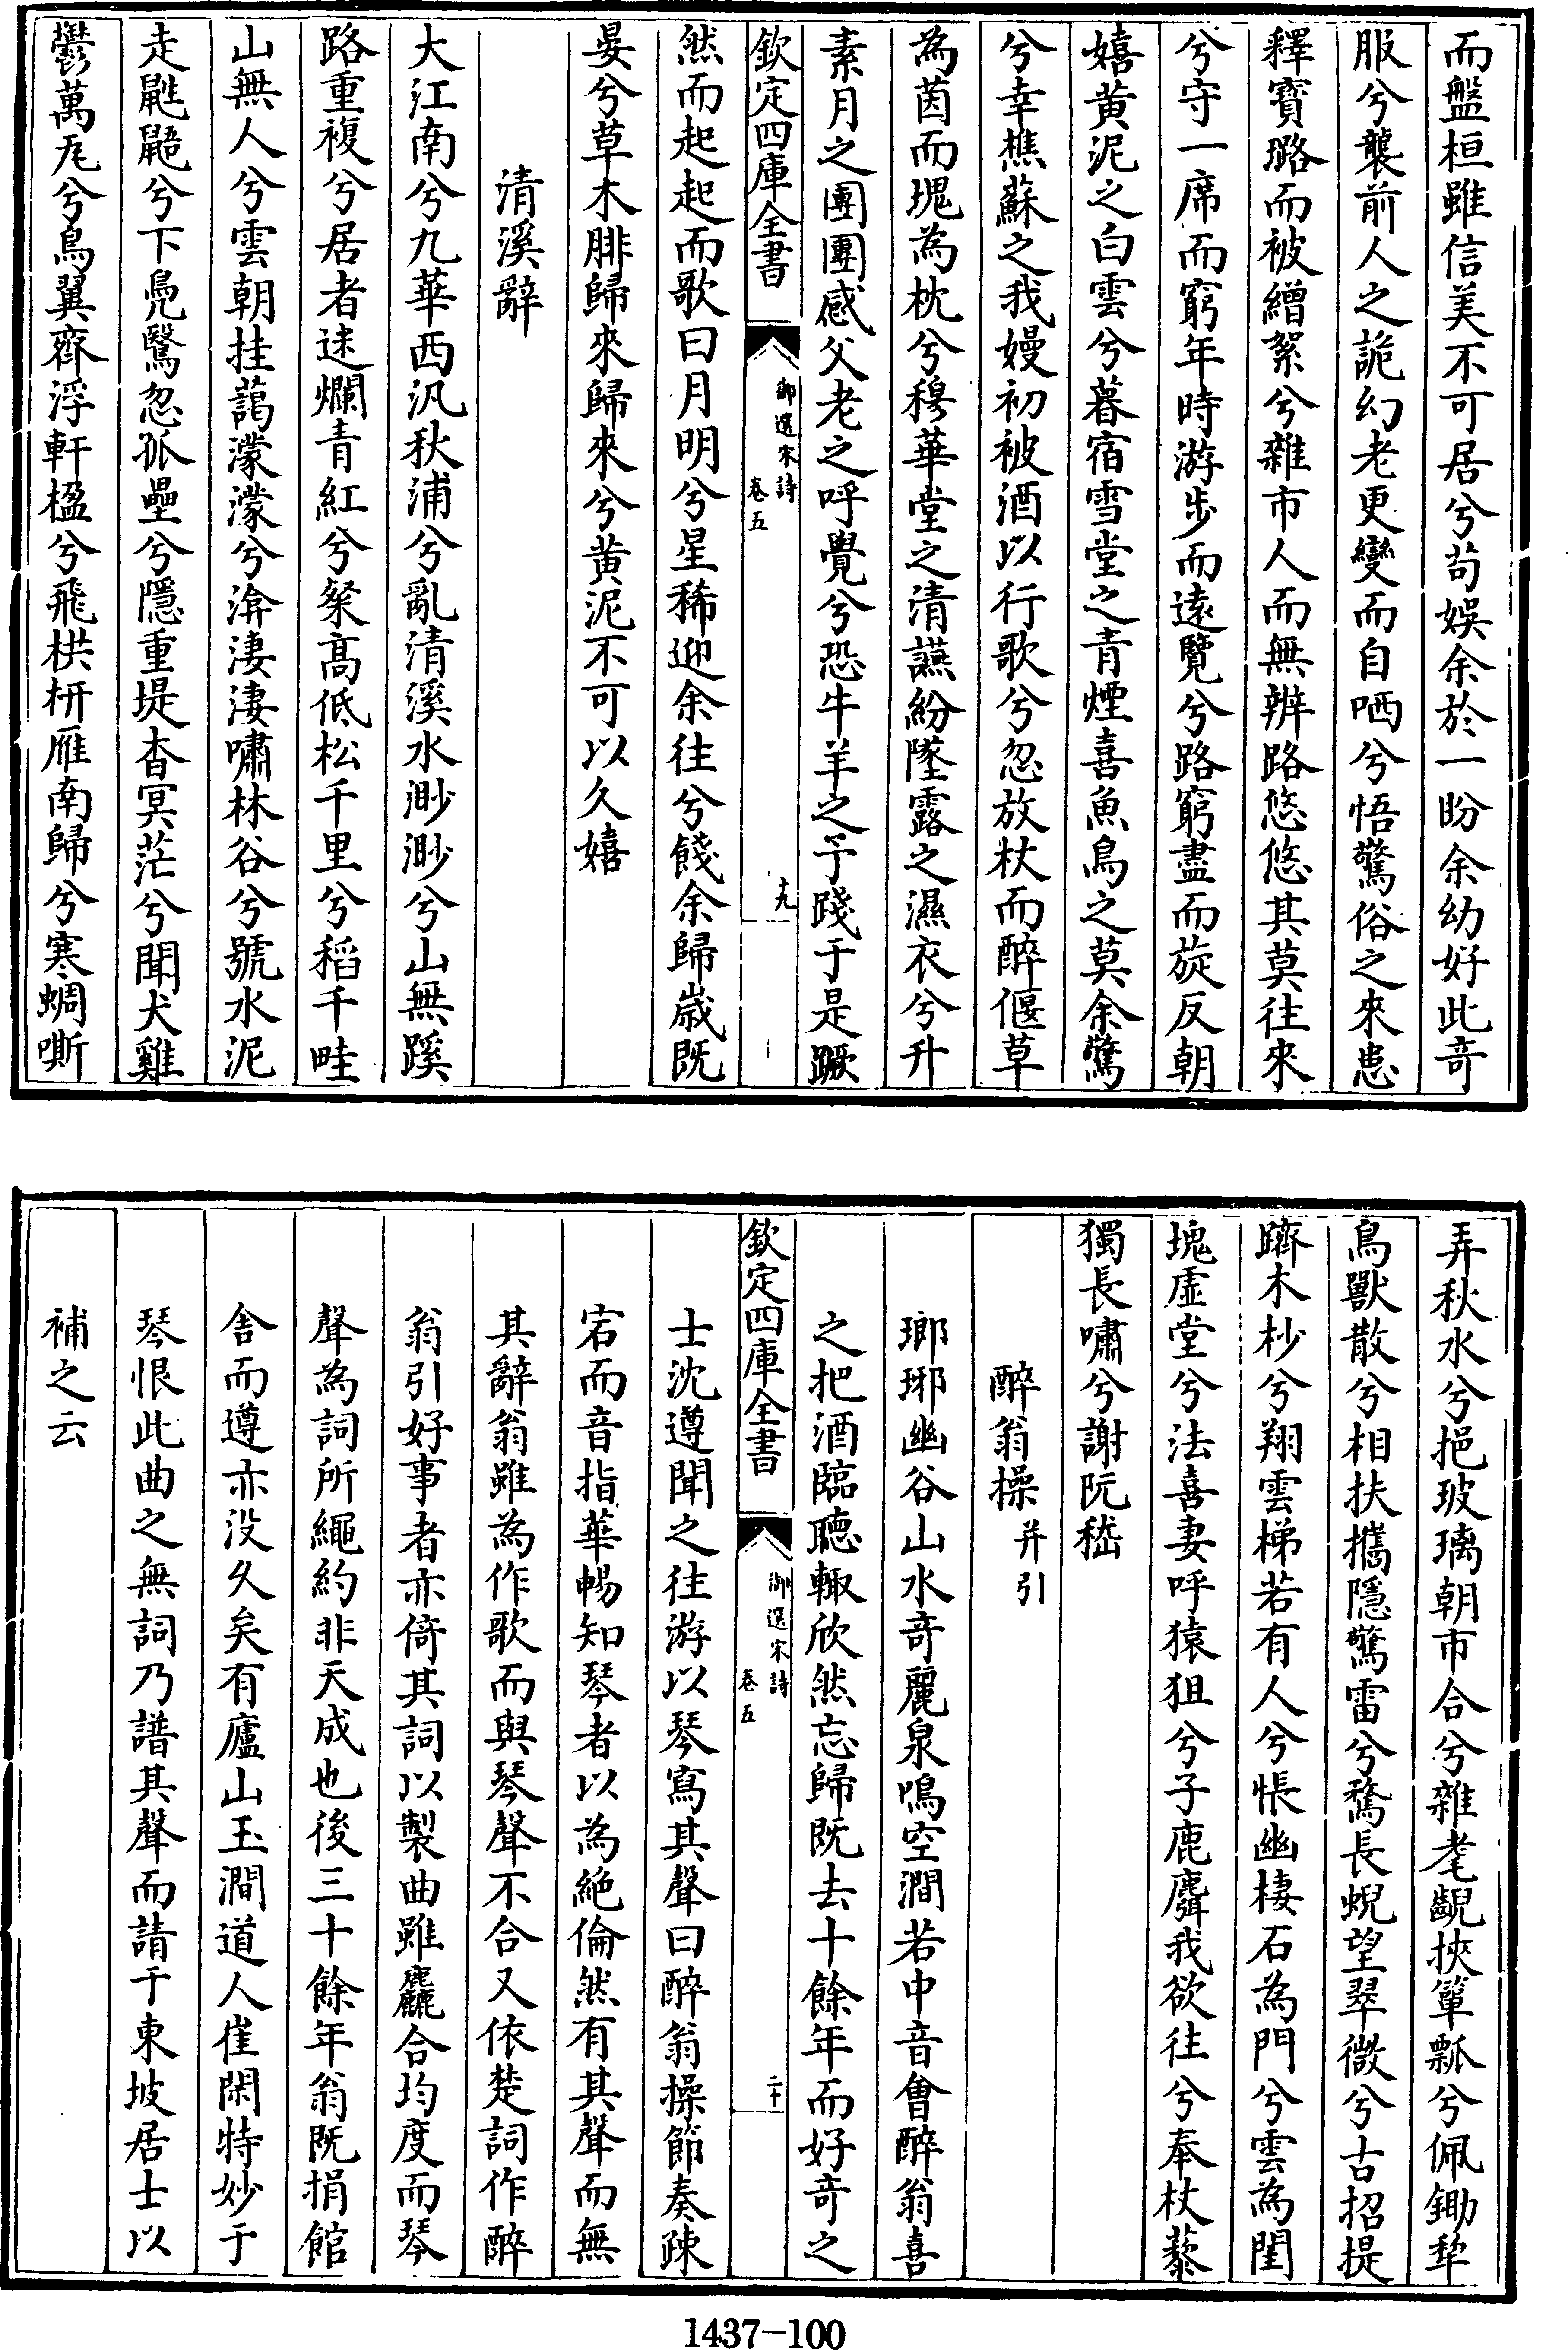 而盤桓雖信美不可居兮茍娛余於一盼余幼好此奇
服兮襲前人之詭幻老更變而自哂兮悟驚俗之來患
釋寳璐而被繒絮兮雜市人而無辨路悠悠其莫往來
兮守一席而窮年時游步而遠覽兮路窮盡而旋反朝
嬉黄泥之白雲兮暮宿雪堂之青煙喜魚鳥之莫余驚
兮幸樵蘇之我嫚初被酒以行歌兮忽放杖而醉偃草
為茵而塊為枕兮穆華堂之清讌紛墜露之濕衣兮升
素月之團團感父老之呼覺兮恐牛羊之予踐于是蹶
欽定四庫全書
御選宋詩
卷五
十九
然而起起而歌曰月明兮星稀迎余往兮餞余歸嵗既
晏兮草木腓歸來歸來兮黄泥不可以久嬉
清溪辭
大江南兮九華西汎秋浦兮亂清溪水渺渺兮山無蹊
路重複兮居者迷爛青紅兮粲髙低松千里兮稻千畦
山無人兮雲朝挂藹濛濛兮渰淒淒嘯林谷兮號水泥
走鼪鼯兮下鳬鷖忽孤壘兮隱重堤杳冥茫兮聞犬雞
鬱萬瓦兮鳥翼齊浮軒楹兮飛栱枅雁南歸兮寒蜩嘶
弄秋水兮挹玻璃朝市合兮雜耄齯挾簞瓢兮佩鋤犂
鳥獸散兮相扶攜隱驚雷兮騖長蜺望翠微兮古招提
躋木杪兮翔雲梯若有人兮悵幽棲石為門兮雲為閨
塊虛堂兮法喜妻呼猿狙兮子鹿麛我欲往兮奉杖藜
獨長嘯兮謝阮嵇
醉翁操并引
瑯琊幽谷山水奇麗泉鳴空澗若中音會醉翁喜
之把酒臨聴輒欣然忘歸既去十餘年而好奇之
欽定四庫全書
御選宋詩
卷五
二十
士沈遵聞之往游以琴寫其聲曰醉翁操節奏疎
宕而音指華暢知琴者以為絶倫然有其聲而無
其辭翁雖為作歌而與琴聲不合又依楚詞作醉
翁引好事者亦倚其詞以製曲雖麤合均度而琴
聲為詞所繩約非天成也後三十餘年翁既捐館
舍而遵亦没久矣有廬山玉澗道人崔閑特妙于
琴恨此曲之無詞乃譜其聲而請于東坡居士以
補之云
1437-100